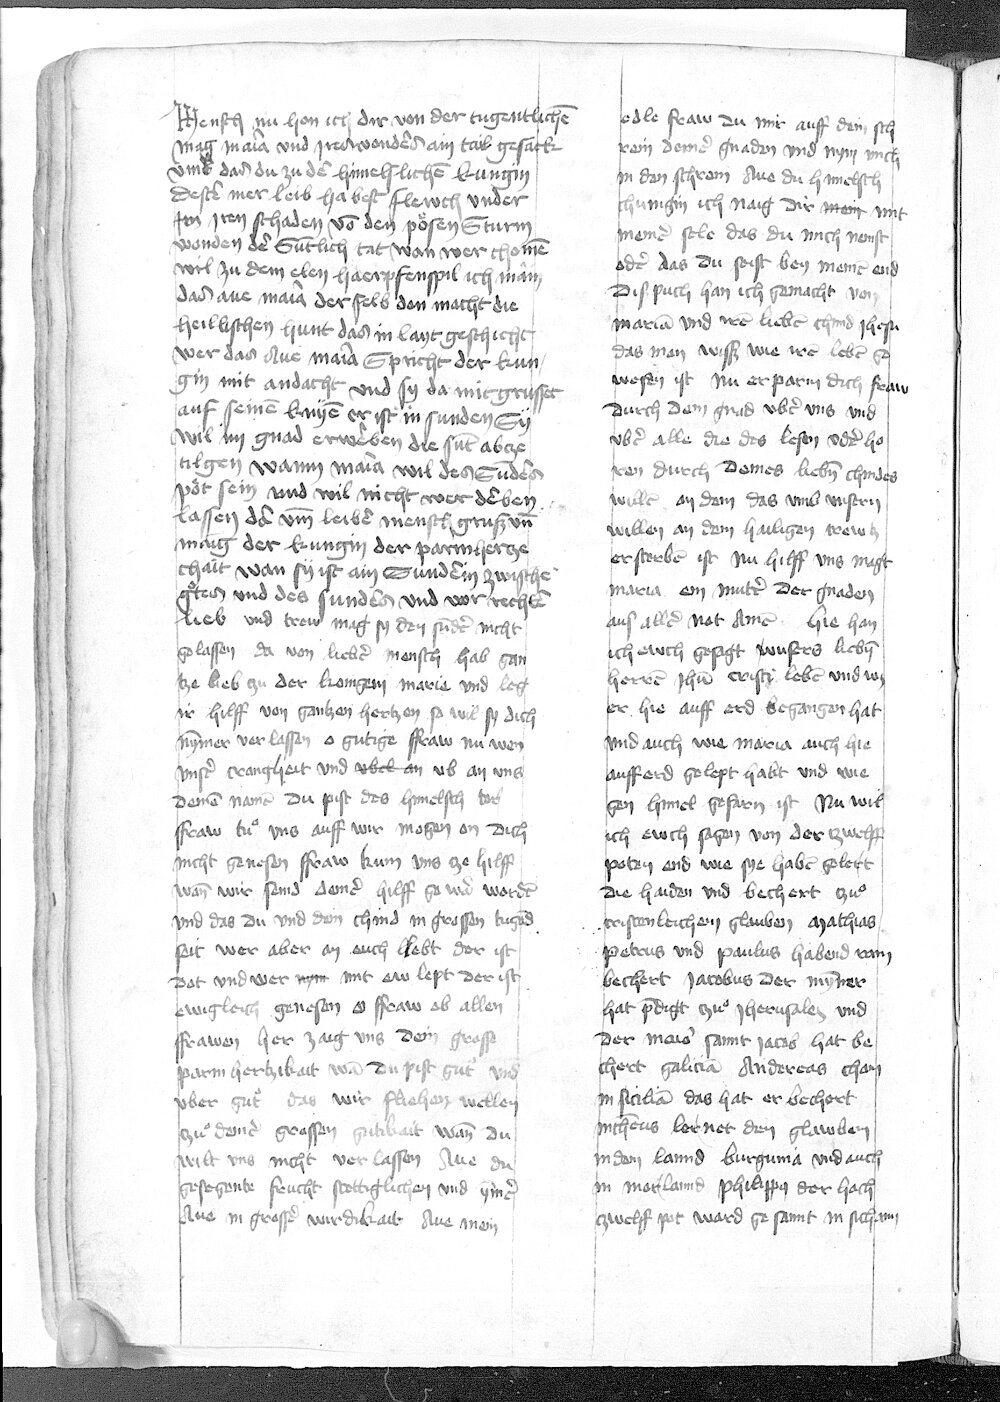 Mensch nu hon ich dir von der tugentlichē
mag maīa und
umb das du zu dē himelischen kungin
destē mer leib habest flewch under
irn iren schaden vō den pösen Sturm
wonden dē Süntlich tat wan wer chomē
wil zu dem elen haerpfenspil ich main
das aue maīa der selb den macht die
hellischen hunt das in layt geschicht
wer das Aue maīa Spricht der kun
gin mit andacht und sy da mit grusset
auf seinē knyē er ist in sunden Sy
wil im gnad erwerben die sūt abtze
tilgen wann maīa wil des Sundēs
pot sein und wil nicht verderben
lassen dē umb leibē mensch grusz uñ
naig der kungin der parmhertze
chait wan sy ist ain Sunderin zwischē
gotes und des sunders und vor rechtē
lieb und trew mag sy den sūdē nicht
gelassen da von liebē mensch hab gan
tze lieb tzu der konigein marie und leg
ir hilff von gantzen hertzen so wil sy dich
nymer verlassen o gutige ffraw nu wen
unsē crangheit und ubel an ob an uns
deinē namē Du pist des himelsch tor
ffraw tu uns auff wir mogen on dich
nicht genesen ffraw kum uns tze hilff
wan wir seind deinē hilff gewis wordē
und das du und dein chind in grossen tugēd
seit wer aber an euch lebt der ist
dot und wer mit ew lept der ist
ewigleich genesen o ffraw ob allen
ffrawen her zaig uns dein grosse
parmhertzikait wā du pist gut und
uber gut das wir fliehen wellen
zu deinē grossen gutikait wan du
wilt uns nicht verlassen Aue du
gesegente frucht stettiglichen und ymē
Aue in grossē wirdikait Aue mein
edle fraw du mir auff dein sch
rein deinē gnaden und nym mich
in den schrein Aue du himelsch
chunigin ich naig dir mein mit
meinē sele das du mich nemst
odē das du seist bey meinē end
Dis puch han ich gemacht von
mariā und irē liebē chind ihesu
das man wissz wie irē lebē ge
wesen ist Nu erparm dich fraw
durch dein gnad ubē uns und
ubē alle die das lesen odē ho
ren durch deines liebn chindes
willē an dem das umb unsern
willen an dem hailigen krewtz
erstorbē ist Nu hilff uns magt
maria ein mutē der gnaden
aus allē not Amē Hie han
ich ewch gesagt unsers liebn
herrē Ihū cristi lebē und wy
er hie auff erd begangen hat
und auch wie maria auch hie
auff erd gelept habt und wie
gen himel gefarn ist Nu wil
ich ewch sagen von der tzwelff
poten end wie sye habē gelert
die haiden und bechert zu
cristenleichem glauben Mathias
petrus und paulus habend rom
bechert Jacobus der mynner
hat pdigt zu Iherusalem und
der maior sannt Jacob hat be
chert galiciā Andereas cham
in siciliā das hat er bechert
lernet den glawben
in dem lannd burguniā und auch
in morlannd philippy der hach
tzwelff pot ward gesannt in sichann